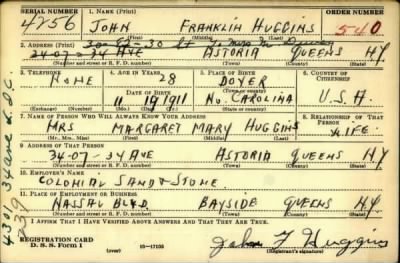 SERIAL NUMBER 1. NAME (Print) ORDER NUMBER
4256 JOHN FRANKLIN HUGGINS 540
(First) (Middle) (Last)
2. ADDRESS (Print)
34-07-34 AVE ASTORIA QUEENS N.Y
(Number and street or R. F. D. number) (Town) (County) (State)
3. TELEPHONE 4. AGE IN YEARS 5. PLACE OF BIRTH 6. COUNTRY OF CITIZENSHIP
NONE 28 DOVER
DATE OF BIRTH (Town or county)
11 19 1911 NO. CAROLINA U.S.A.
(Exchange) (Number) (Mo.) (Day) (Yr.) (State or country)
7. NAME OF PERSON WHO WILL ALWAYS KNOW YOUR ADDRESS 8. RELATIONSHIP OF THAT PERSON
MRS MARGARET MARY HUGGINS WIFE
(Mr., Mrs., Miss) (First) (Middle) (Last)
9. ADDRESS OF THAT PERSON
34-07-34 AVE ASTORIA QUEENS N.Y
(Number and street or R. F. D. number) (Town) (County) (State)
10. EMPLOYER'S NAME
COLONIAL SAND & STONE
11. PLACE OF EMPLOYMENT OR BUSINESS
NASSAU BLVD BAYSIDE QUEENS N.Y
(Number and street or R. F. D. number) (Town) (County) (State)
I AFFIRM THAT I HAVE VERIFIED ABOVE ANSWERS AND THAT THEY ARE TRUE.
REGISTRATION CARD
D. S. S. Form 1 (over) 16-17105 John F Huggins
(Registrant's signature)